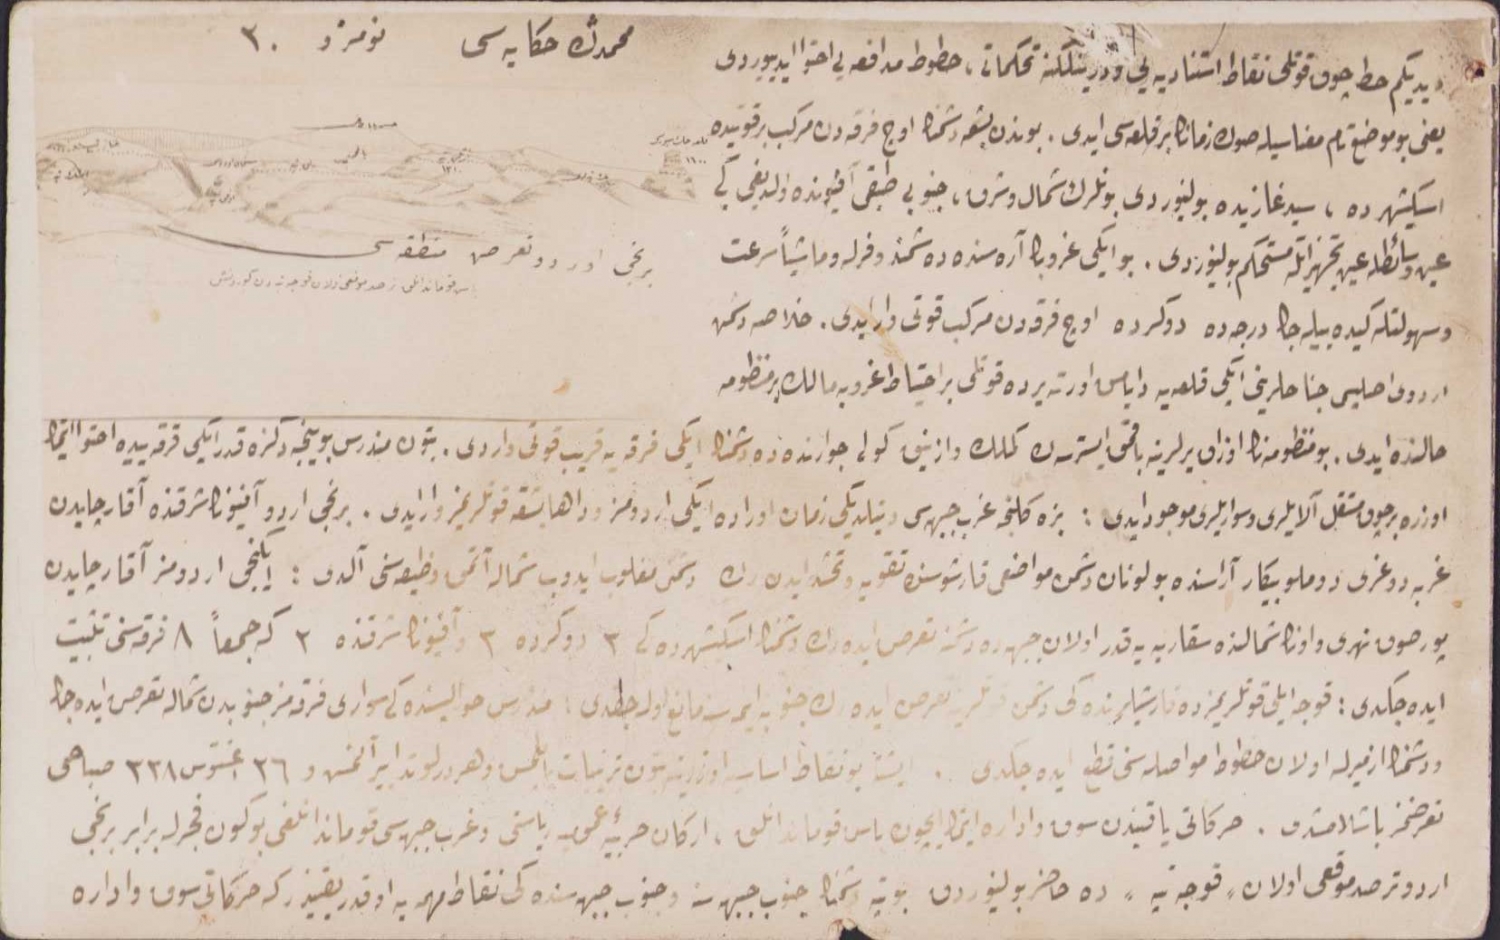 محمدڭ حكايه سى
نومرو ٣٠
ديديكم خط چوق قوتلى نقاط استناديه يى ودرينلكنه تحكماتى ، خطوط مدافعه يى احتوا ايدييوردى
يعنى بو موضع تام معناسيله صوڭ زمانڭ بر قلعه سى ايدى . بوندن بشقه دشمنڭ اوچ فرقه دن مركب بر قوتيده
اسكيشهرده ، سيد غازيده بولنيوردى بونلرڭ شمال وشرق ، جنوبى طبقى آفيونده اولديغى كبى
عين وسائطله عين تجهيزاتله مستحكم بولنيوردى . بو ايكى غروبڭ آره سنده ده شمندوفرله وماشياً سرعت
وسهولتله كيده بيله جك درجه ده دوكرده اوچ فرقه دن مركب قوتى وار ايدى . خلاصه دشمن
اردوى اصليسى جناحلرينى ايكى قلعه يه دايامش اورته يرده قوتلى بر احتياط غروبه مالك بر منظومه
حالنده ايدى . بو منظومه نڭ اوزاق يرلرينه باقمق ايسترسه ك كملك وازنيق كولى جوارنده ده دشمنڭ ايكى فرقه يه قريب قوتى واردى . بتون مندرس بوينجه دڭزه قدر ايكى فرقه ييده احتوا ايتمك
اوزره بر چوق مستقل آلايلرى وسواريلرى موجود ايدى : بزه كلنجه غرب جبهه سى دينلديكى زمان اوراده ايكى اردومز وداها بشقه قوتلريمز وار ايدى . برنجى اردو آفيونڭ شرقنده آقار چايدن
غربه دوغرى دوملوبيڭار آراسنده بولونان دشمن مواضعى قارشوسنده تقويه وتحشد ايده رك دشمنى مغلوب ايدوب شماله آتمق وظيفه سنى آلدى : ايكنجى اردومز آقار چايدن
پورصوق نهرى واونڭ شمالنده سقاريه يه قدر اولان جبهه ده دشمنه تعرض ايده رك دشمنڭ اسكيشهرده كى ٣ دوكرده ٣ وآفيونڭ شرقنده ٢ كه جمعاً ٨ فرقه سنى تثبيت
ايده جكدى : قوجه ايلى قوتلريمز ده قارشيلرنده كى دشمن قوتلرينه تعرض ايده رك جنوبه اينمه سنه مانع اوله جقدى ؛ مندرس حواليسنده كى سوارى فرقه مز جنوبدن شماله تعرض ايده جك
ودشمنڭ ازميرله اولان خطوط مواصله سنى قطع ايده جكدى . ايشته بو نقاط اساسيه اوزرينه بتون ترتيبات ياپلمش وهر درلو تدابير آلنمش و ٢٦ اغستوس ٣٣٨ صباحى
تعرضمز باشلامشدى . حركاتى ياقيندن سوق واداره ايتمك ايچون باش قوماندانلق ، اركان حربيهٔ عموميه رياستى وغرب جبهه سى قوماندانلغى بوكون فجرله برابر برنجى
اردو ترصد موقعى اولان « قوجه تپه » ده حاضر بولنيوردق بو تپه دشمنڭ جنوب جبهه سنه وجنوب جبهه سنده كى نقاط مهمه يه او قدر يقيندر كه حركاتى سوق واداره
برنجى اوردو تعرض منطقه سى
باش قوماندانلق ترصد موقعى اولان قوجه تپه دن كورونش